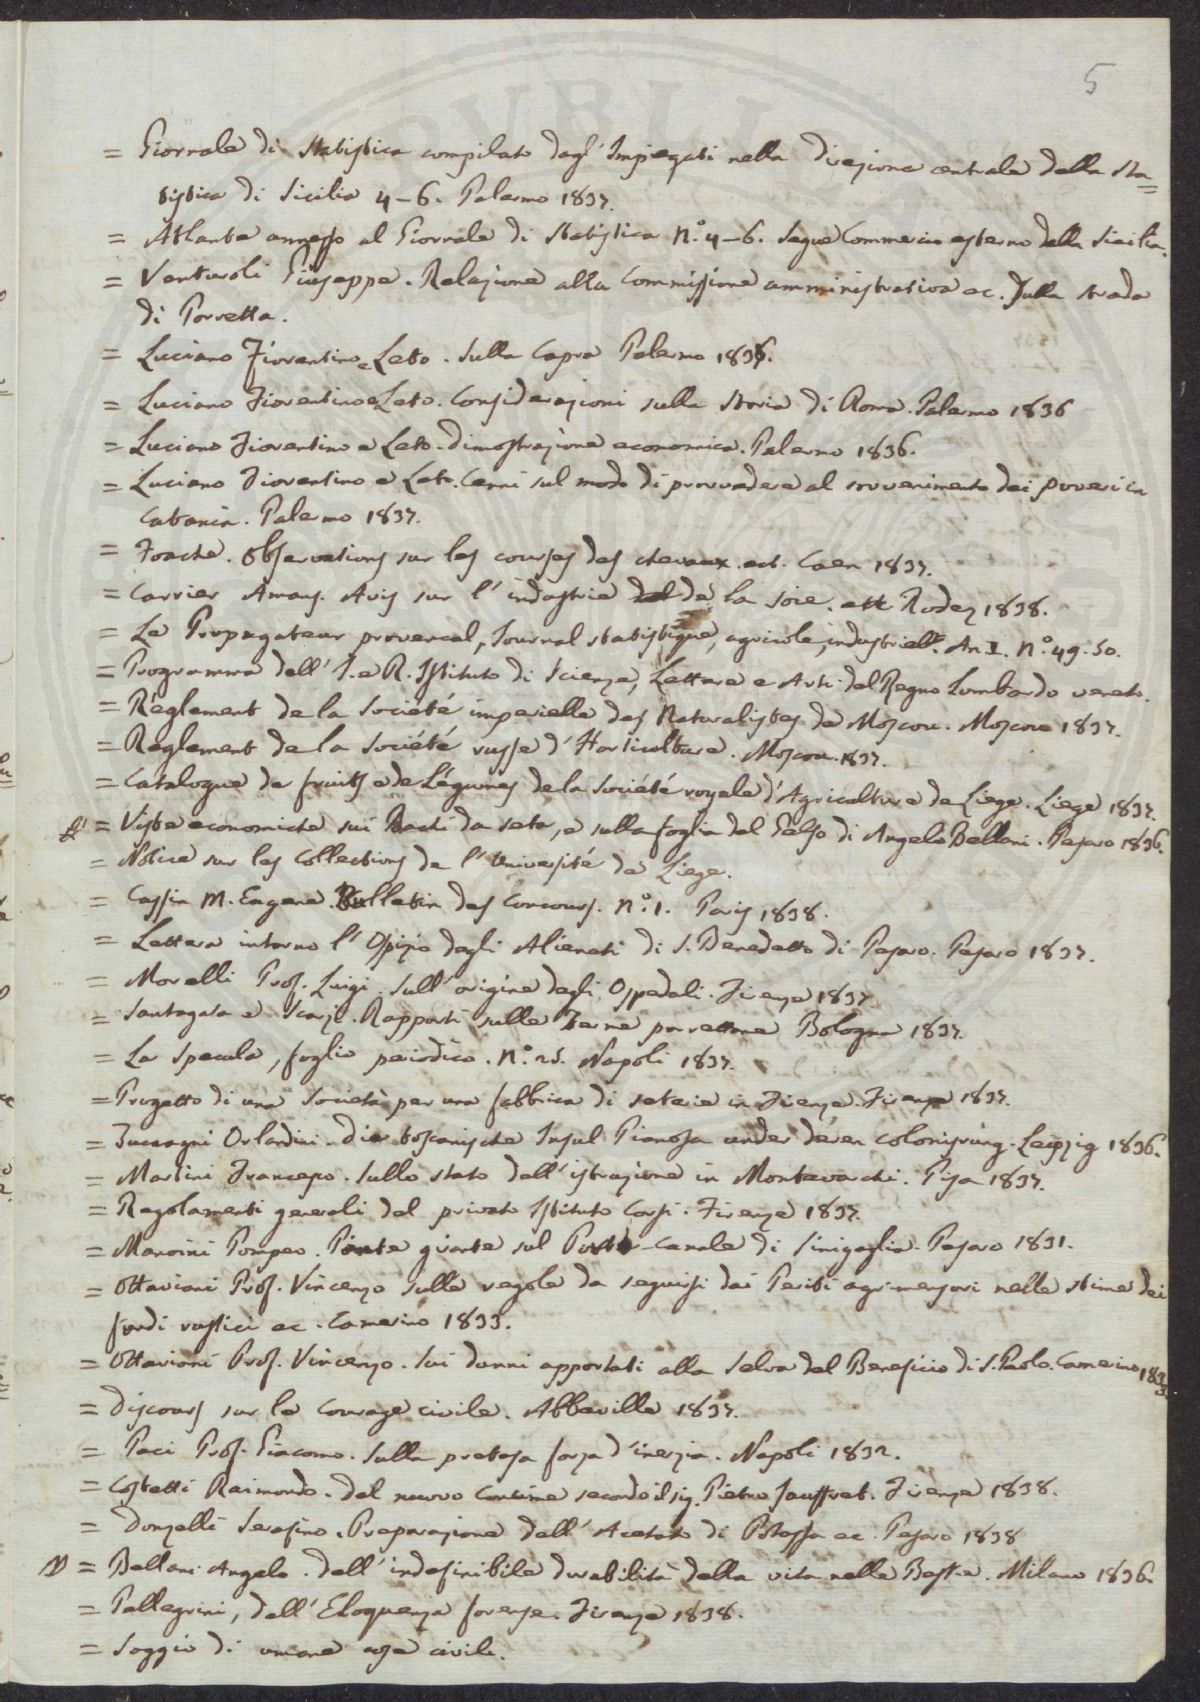 5
= Giornale di Statistica compilato dagl' Impiegati nella direzione centrale della sta=
tistica di Sicilia 4-6. Palermo 1837.
= Atlante annesso al Giornale di Statistica N.° 4-6. Segue Commercio esterno della Sicilia.
= Venturoli Giuseppe. Relazione alla Commissione amministrativa ec. Sulla strada
di Porretta.
= Luciano Fiorentino e Leto. Sulla Capra Palermo 1836.
= Luciano Fiorentino e Leto. Considerazioni sulla Storia di Roma. Palermo 1836
= Luciano Fiorentino e Leto. dimostrazione economica. Palermo 1836.
= Luciano Fiorentino e Leto. Cenni sul modo di provvedere al sovvenimento dei poveri in
Catania. Palermo 1837.
= Foache. Observations sur les courses des chevaux ect. Caen 1837.
= Carrier Amans. Avis sur l'industrie de la soie. ett Rodez 1838.
= Le Propagateur provencal, Journal statistique, agricole, industriell. An. I. N.° 49. 50.
= Programma dell' I. e R. Istituto di Scienze, Lettere e Arti del Regno Lombardo veneto.
= Reglement de la Société imperielle des Naturalistes de Moscou. Moscou 1837.
= Reglement de la Société russe d'Horticolture. Moscou. 1837.
= Catalogue de fruits e de Légumes de la Société royale d'Agricolture de Liege. Liege 1837.
= Viste economiche sui Bachi da seta, e sulla foglia del Gelso di Angelo Bellani. Pesaro 1836.
= Notice sur les Collections de l'Université de Liege.
= Cassin M. Eugene. Bulletin des Concours. N.° 1. Paris 1838.
= Lettera intorno l'Ospizio degli Alienati di S. Benedetto di Pesaro. Pesaro 1837.
= Morelli Prof. Luigi. Sull'origine degli Ospedali. Firenze 1837
= Santagata e Scarj. Rapporti sulle Terme porrettane Bologna 1837.
= La Specula, foglio periodico. N.° 25. Napoli 1837.
= Progetto di una Società per una fabbrica di seterie in Firenze. Firenze 1837.
= Zuccagni Orlandini. Die toscanische Insul Pianosa under deren colonisrung. Leipzig 1836.
= Martini Francesco. Sullo stato dell'istruzione in Montevarchi. Pisa 1837.
= Regolamenti generali del privato Istituto Corsi. Firenze 1837.
= Mancini Pompeo. Ponte girante sul Porto-canale di Sinigaglia. Pesaro 1831.
= Ottaviani Prof. Vincenzo Sulle regole da seguirsi dai Periti agrimensori nelle stime dei
fondi rustici ec. Camerino 1833.
= Ottaviani Prof. Vincenzo. Sui danni apportati alla Selva del Beneficio di S. Paolo. Camerino 1833
= Discours sur le Courage civile. Abbeville 1837.
= Paci Prof. Giacomo. Sulla pretesa forza d'inerzia. Napoli 1832.
= Costetti Raimondo. del nuovo Concime secondo il sig. Pietro Jauffret. Firenze 1838.
= Donzelli Serafino. Preparazione dell'Acetato di Potassa ec. Pesaro 1838
= Bellani Angelo. dell'indefinibile durabilità della vita nelle Bestie. Milano 1836.
= Pellegrini, dell'Eloquenza forense. Firenze 1838.
= Saggio di umane cose civili.